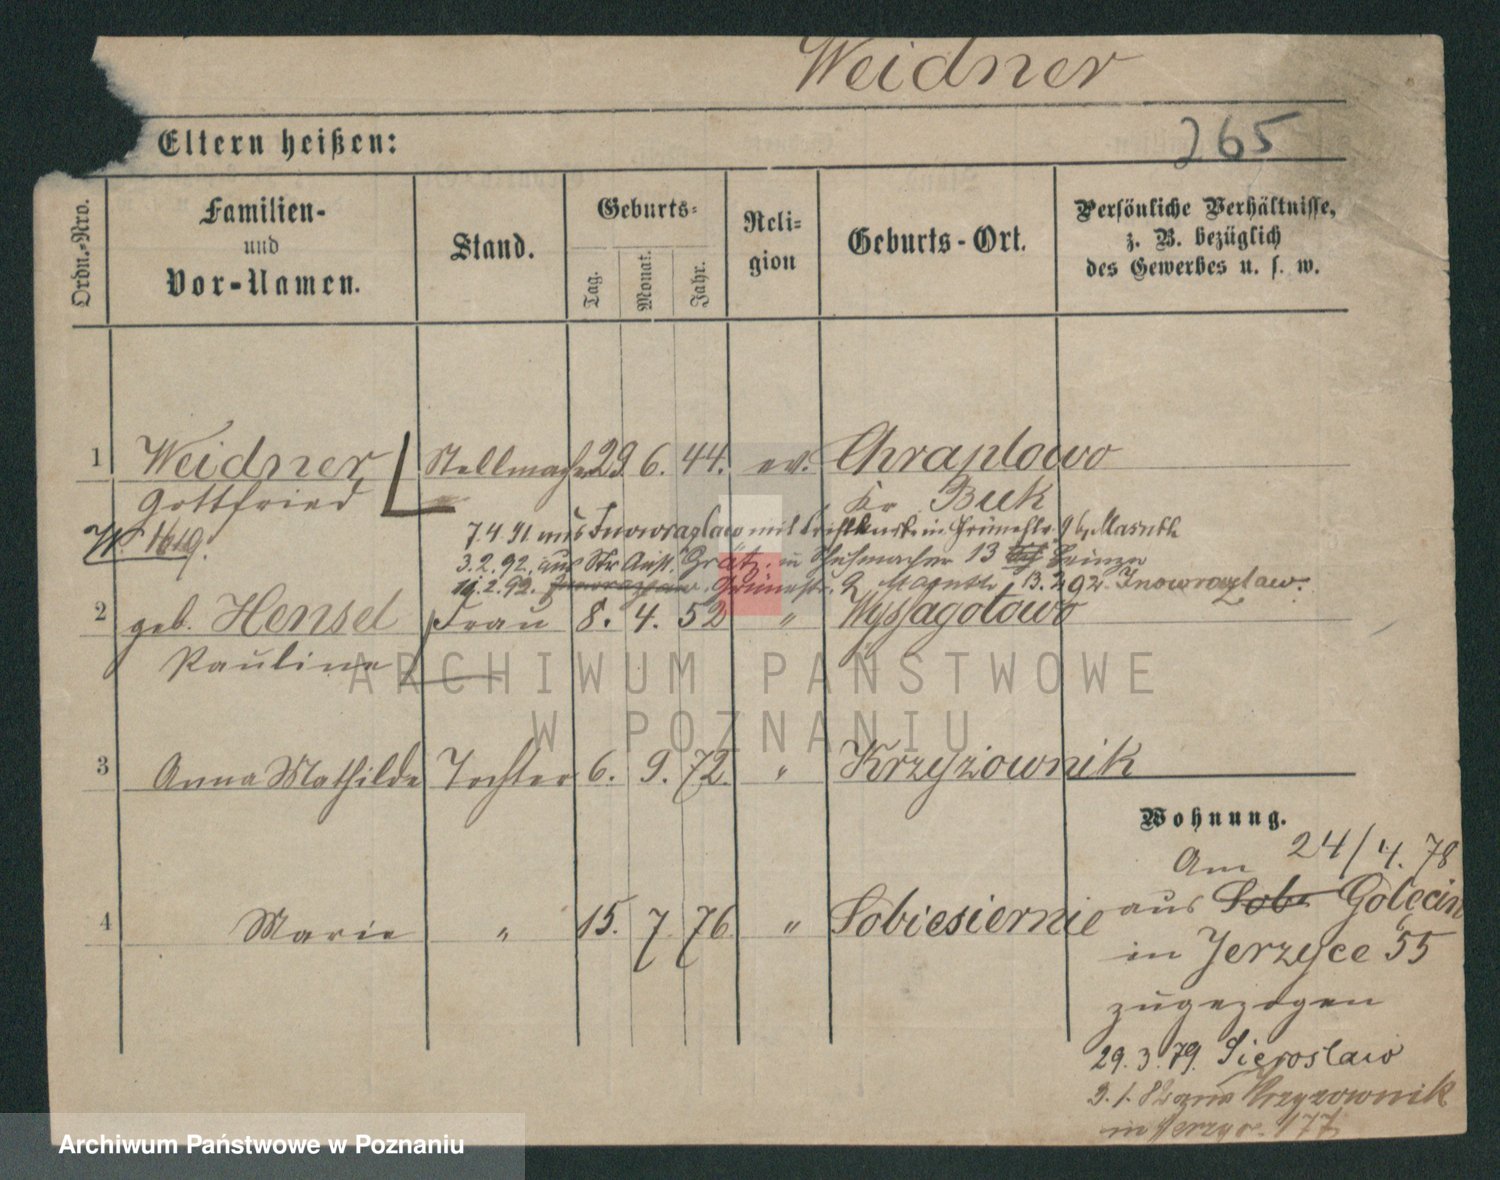 Weidner
265
Eltern heißen:
Ordn.-Nro.
Familien-
und
Vor-Namen.
Stand.
Geburts-
Tag.
Monat.
Jahr.
Reli-
gion
Geburts-Ort.
Persönliche Verhältnisse,
z. B. bezüglich
des Gewerbes u. s. w.
1 Weidner Stellmacher 29. 6. 44. ev. Chraplowo
Gottfried Kr. Buk
1619.
7.4.91 aus Inowrazlaw mit
3.2.92. aus Grätz. in 13
11.2.92. Inowrazlaw. 13.2.92 Inowrazlaw.
2 geb. Hensel Frau 8. 4. 52 " Wyssagotowo
Pauline
3 Anna Mathilde Tochter 6. 9. 72. " Krzyżownik
4 Marie " 15. 7 76 " Sobiesiernie
Wohnung.
Am 24/4. 78
aus Sob. Golecin
in Jerzyce 55
zugezogen
29.3.79. Sieroslaw
3.1.82 aus Krzyzownik
in 177
ARCHIWUM PAŃSTWOWE
W POZNANIU
Archiwum Państwowe w Poznaniu